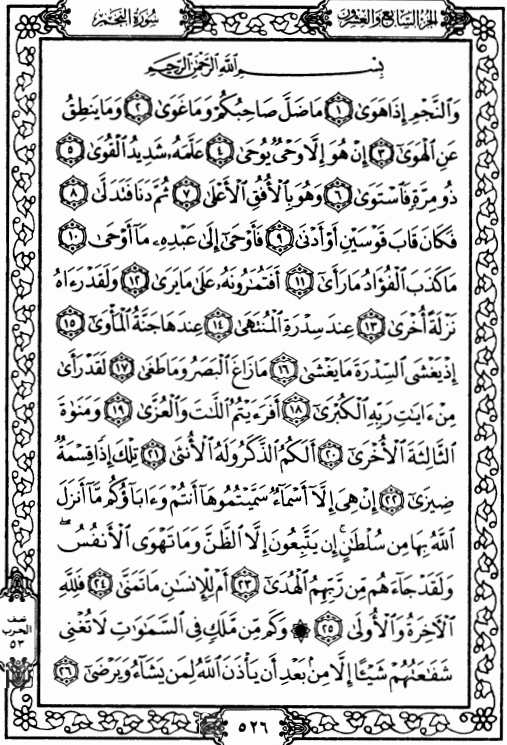 الجزء السابع والعشرون
سورة النجم
بِسْمِ اللَّهِ الرَّحْمَٰنِ الرَّحِيمِ
وَالنَّجْمِ إِذَا هَوَىٰ ١ مَا ضَلَّ صَاحِبُكُمْ وَمَا غَوَىٰ ٢ وَمَا يَنطِقُ
عَنِ الْهَوَىٰ ٣ إِنْ هُوَ إِلَّا وَحْيٌ يُوحَىٰ ٤ عَلَّمَهُۥ شَدِيدُ الْقُوَىٰ ٥
ذُو مِرَّةٍ فَاسْتَوَىٰ ٦ وَهُوَ بِالْأُفُقِ الْأَعْلَىٰ ٧ ثُمَّ دَنَا فَتَدَلَّىٰ ٨
فَكَانَ قَابَ قَوْسَيْنِ أَوْ أَدْنَىٰ ٩ فَأَوْحَىٰ إِلَىٰ عَبْدِهِۦ مَا أَوْحَىٰ ١٠
مَا كَذَبَ الْفُؤَادُ مَا رَأَىٰ ١١ أَفَتُمَٰرُونَهُۥ عَلَىٰ مَا يَرَىٰ ١٢ وَلَقَدْ رَءَاهُ
نَزْلَةً أُخْرَىٰ ١٣ عِندَ سِدْرَةِ الْمُنتَهَىٰ ١٤ عِندَهَا جَنَّةُ الْمَأْوَىٰ ١٥
إِذْ يَغْشَى السِّدْرَةَ مَا يَغْشَىٰ ١٦ مَا زَاغَ الْبَصَرُ وَمَا طَغَىٰ ١٧ لَقَدْ رَأَىٰ
مِنْ ءَايَٰتِ رَبِّهِ الْكُبْرَىٰ ١٨ أَفَرَءَيْتُمُ اللَّٰتَ وَالْعُزَّىٰ ١٩ وَمَنَوٰةَ
الثَّالِثَةَ الْأُخْرَىٰ ٢٠ أَلَكُمُ الذَّكَرُ وَلَهُ الْأُنثَىٰ ٢١ تِلْكَ إِذًا قِسْمَةٌ
ضِيزَىٰ ٢٢ إِنْ هِيَ إِلَّا أَسْمَاءٌ سَمَّيْتُمُوهَا أَنتُمْ وَءَابَاؤُكُم مَّا أَنزَلَ
اللَّهُ بِهَا مِن سُلْطَٰنٍ ۚ إِن يَتَّبِعُونَ إِلَّا الظَّنَّ وَمَا تَهْوَى الْأَنفُسُ ۖ
وَلَقَدْ جَاءَهُم مِّن رَّبِّهِمُ الْهُدَىٰ ٢٣ أَمْ لِلْإِنسَٰنِ مَا تَمَنَّىٰ ٢٤ فَلِلَّهِ
الْآخِرَةُ وَالْأُولَىٰ ٢٥ ۞ وَكَم مِّن مَّلَكٍ فِي السَّمَٰوَٰتِ لَا تُغْنِي
شَفَٰعَتُهُمْ شَيْئًا إِلَّا مِن بَعْدِ أَن يَأْذَنَ اللَّهُ لِمَن يَشَاءُ وَيَرْضَىٰ ٢٦
نصف
الحزب
٥٣
٥٢٦